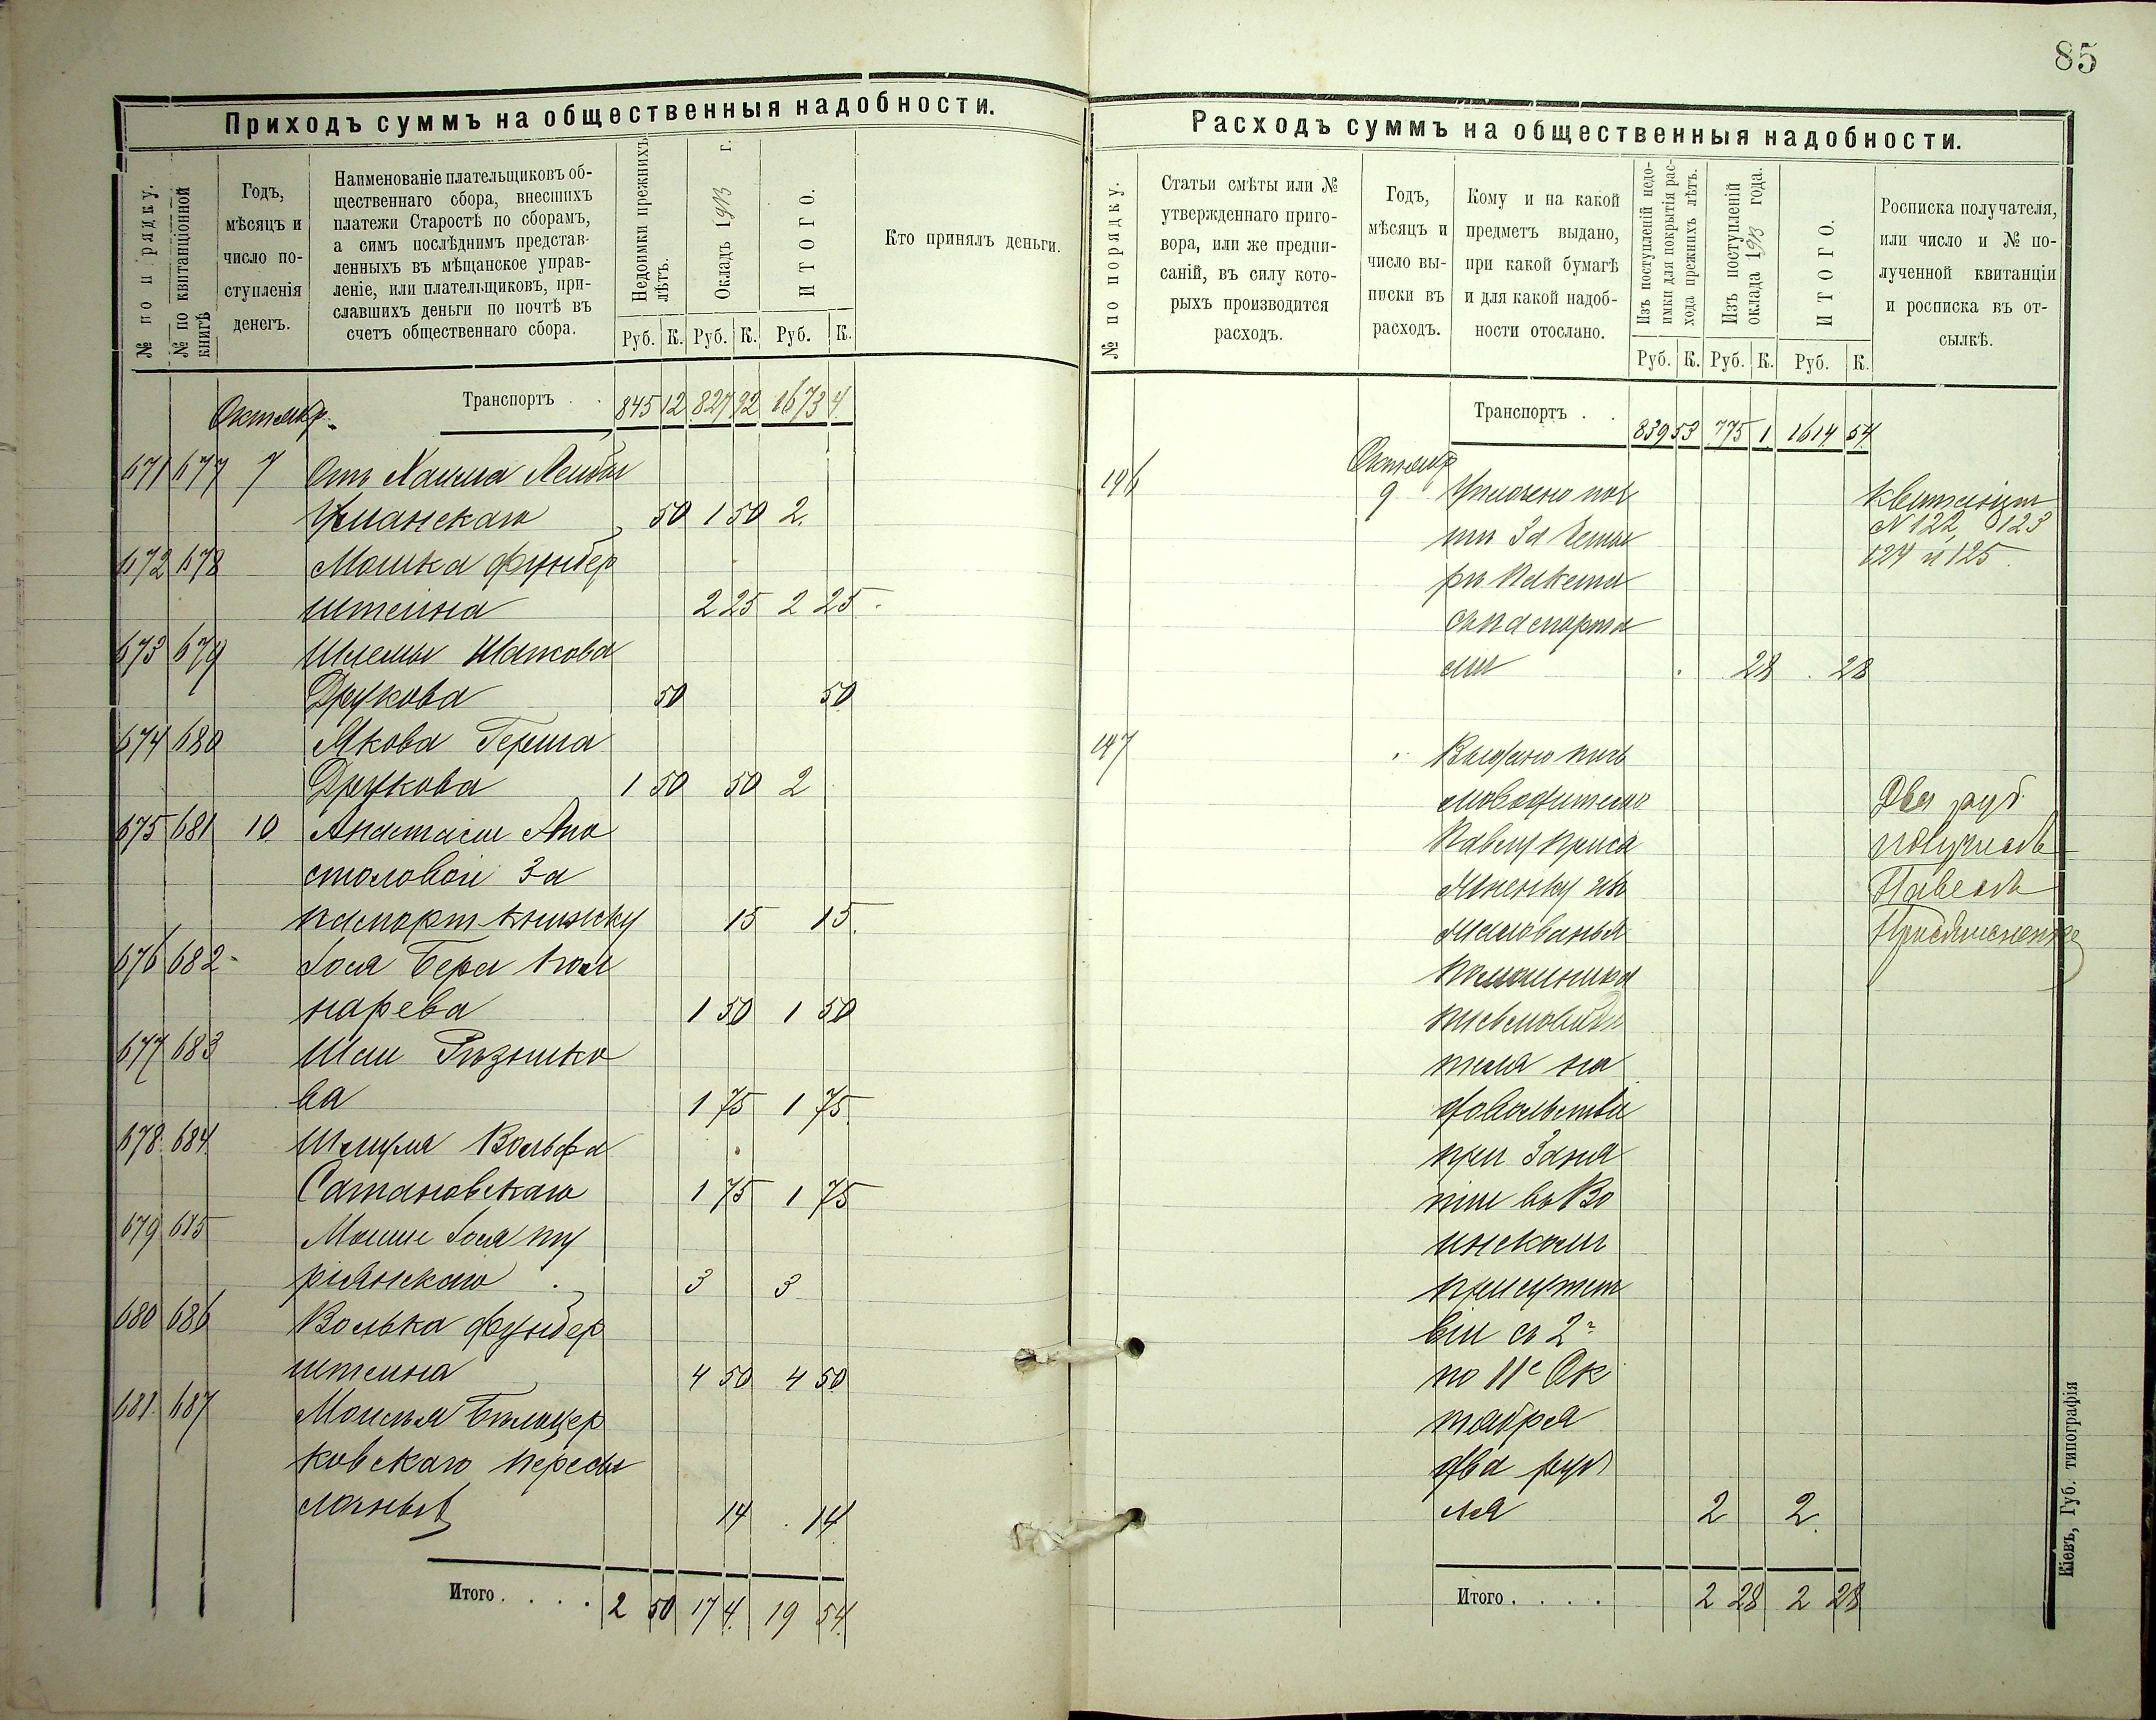 85
Приходъ суммъ на общественныя надобности.
№ по порядку.
№ по квитанціонной книгѣ
Годъ,
мѣсяцъ и
число по-
ступленія
денегъ.
Наименованіе плательщиковъ об-
щественнаго сбора, внесшихъ
платежи Старостѣ по сборамъ,
а симъ послѣднимъ представ-
ленныхъ въ мѣщанское управ-
леніе, или плательщиковъ, при-
славшихъ деньги по почтѣ въ
счетъ общественнаго сбора.
Недоимки прежнихъ
лѣтъ.
Окладъ 1913 г.
ИТОГО.
Руб. К. Руб. К. Руб. К.
Кто принялъ деньги.
Транспортъ . . 845 12 827 92 1673 4
Октябр.
671 677 7 Отъ Хаима Лейбы
Уманскаго 50 1 50 2.
672 678 Мошка Фунбер
штейна 2 25 2 25.
673 679 Шлемы Шапкова
Друкова 50 50
674 680 Якова Герша
Друкова 1 50 50 2
675 681 10 Анастасіи Апо
столовой за
паспорт книжку 15 15.
676 682 Іося Бера Кол
нарева 1 50 1 50
677 683 Шаи Рѣзнико
ва 1 75 1 75.
678. 684. Шмуля Вольфа
Сатановскаго 1 75 1 75
679 685 Мошне Іося
рианскаго 3 3
680 686 Волька Фунбер
штейна 4 50 4 50
681. 687 Моисея Бѣлоцер
ковскаго пересы
лочныхъ 14 . 14
Итого . . . . 2 50 17 4. 19 54.
Расходъ суммъ на общественныя надобности.
№ по порядку.
Статьи смѣты или №
утвержденнаго приго-
вора, или же предпи-
саній, въ силу кото-
рыхъ производится
расходъ.
Годъ,
мѣсяцъ и
число вы-
писки въ
расходъ.
Кому и на какой
предметъ выдано,
при какой бумагѣ
и для какой надоб-
ности отослано.
Изъ поступленій недо-
имки для покрытія рас-
хода прежнихъ лѣтъ.
Изъ поступленій
оклада 1913 года.
ИТОГО.
Руб. К. Руб. К. Руб. К.
Росписка получателя,
или число и № по-
лученной квитанціи
и росписка въ от-
сылкѣ.
Транспортъ . . 839 53 775 1 1614 54
Октябр
196 9 Уплочено поч
ти за четы
ри пакета
съ паспорта
ми . 28 . 28
квитанціи
N 122, 123
124 и 125.
197 Выдано пись
моводителю
Павлу Приса
жненку
помощника
письмоводи
теля на
довольствіе
при заня
тіи въ Во
инскомъ
присутст
віи съ 2г
по 11е Ок
тября
два руб
ля 2 2.
Два руб.
получилъ
Павелъ
Итого . . . . 2 28 2 28
Кіевъ, Губ. типографія